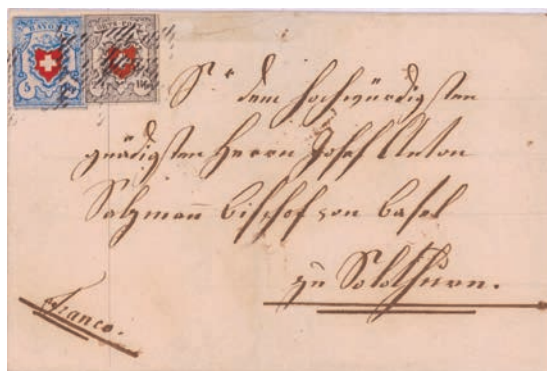 RAYON I
5 Rp.
S.r dem hochwürdigsten
gnädigsten Herrn Josef Anton
Salzman̅ Bischof von Basel
zu Solothurn.
Franco.